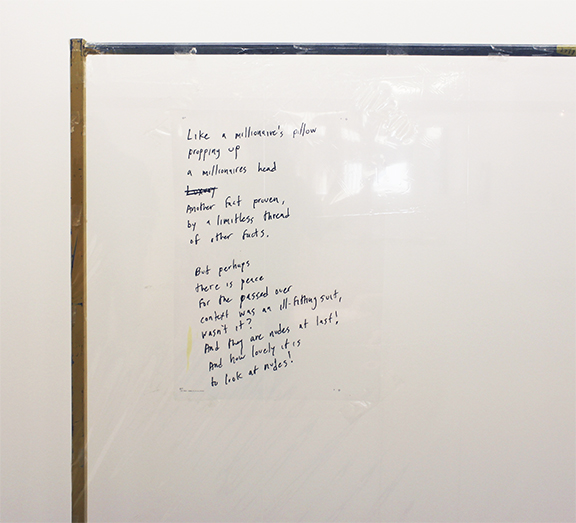 Like a millionaire's pillow
propping up
a millionaires head
Luxury
Another fact proven,
by a limitless thread
of other facts.
But perhaps
there is peace
For the passed over
context was an ill-fitting suit,
wasn't it?
And they are nudes at last!
And how lovely it is
to look at nudes!